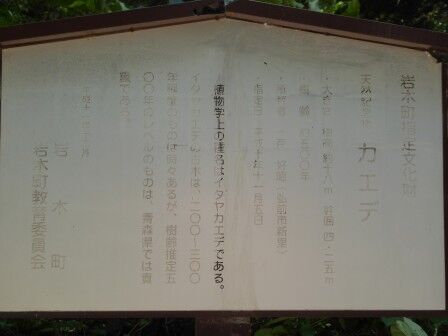 岩木町指定文化財
天然記念物 カエデ
・大きさ 樹高 約十八m 幹周 四・二五m
・樹齢 約五〇〇年
・所有者 好昭（弘前市新里）
・指定日 平成 年十一月五日
植物学上の種名はイタヤカエデである。
イタヤカエデの古木は、二〇〇～三〇〇
年程度のものは間々あるが、樹齢推定五
〇〇年のレベルのものは、青森県では貴
重である。
平成 年 月
岩木町
岩木町教育委員会